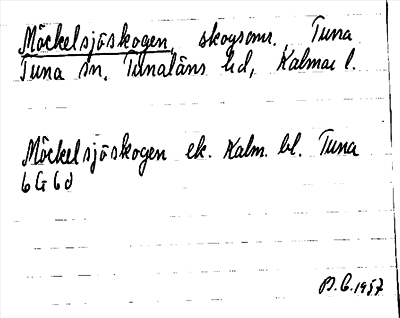 Möckelsjöskogen, skogsomr. Tuna
Tuna sn, Tunaläns hd, Kalmar l.
Möckelsjöskogen ek. Kalm. bl. Tuna
6G 6d
B.G. 1957